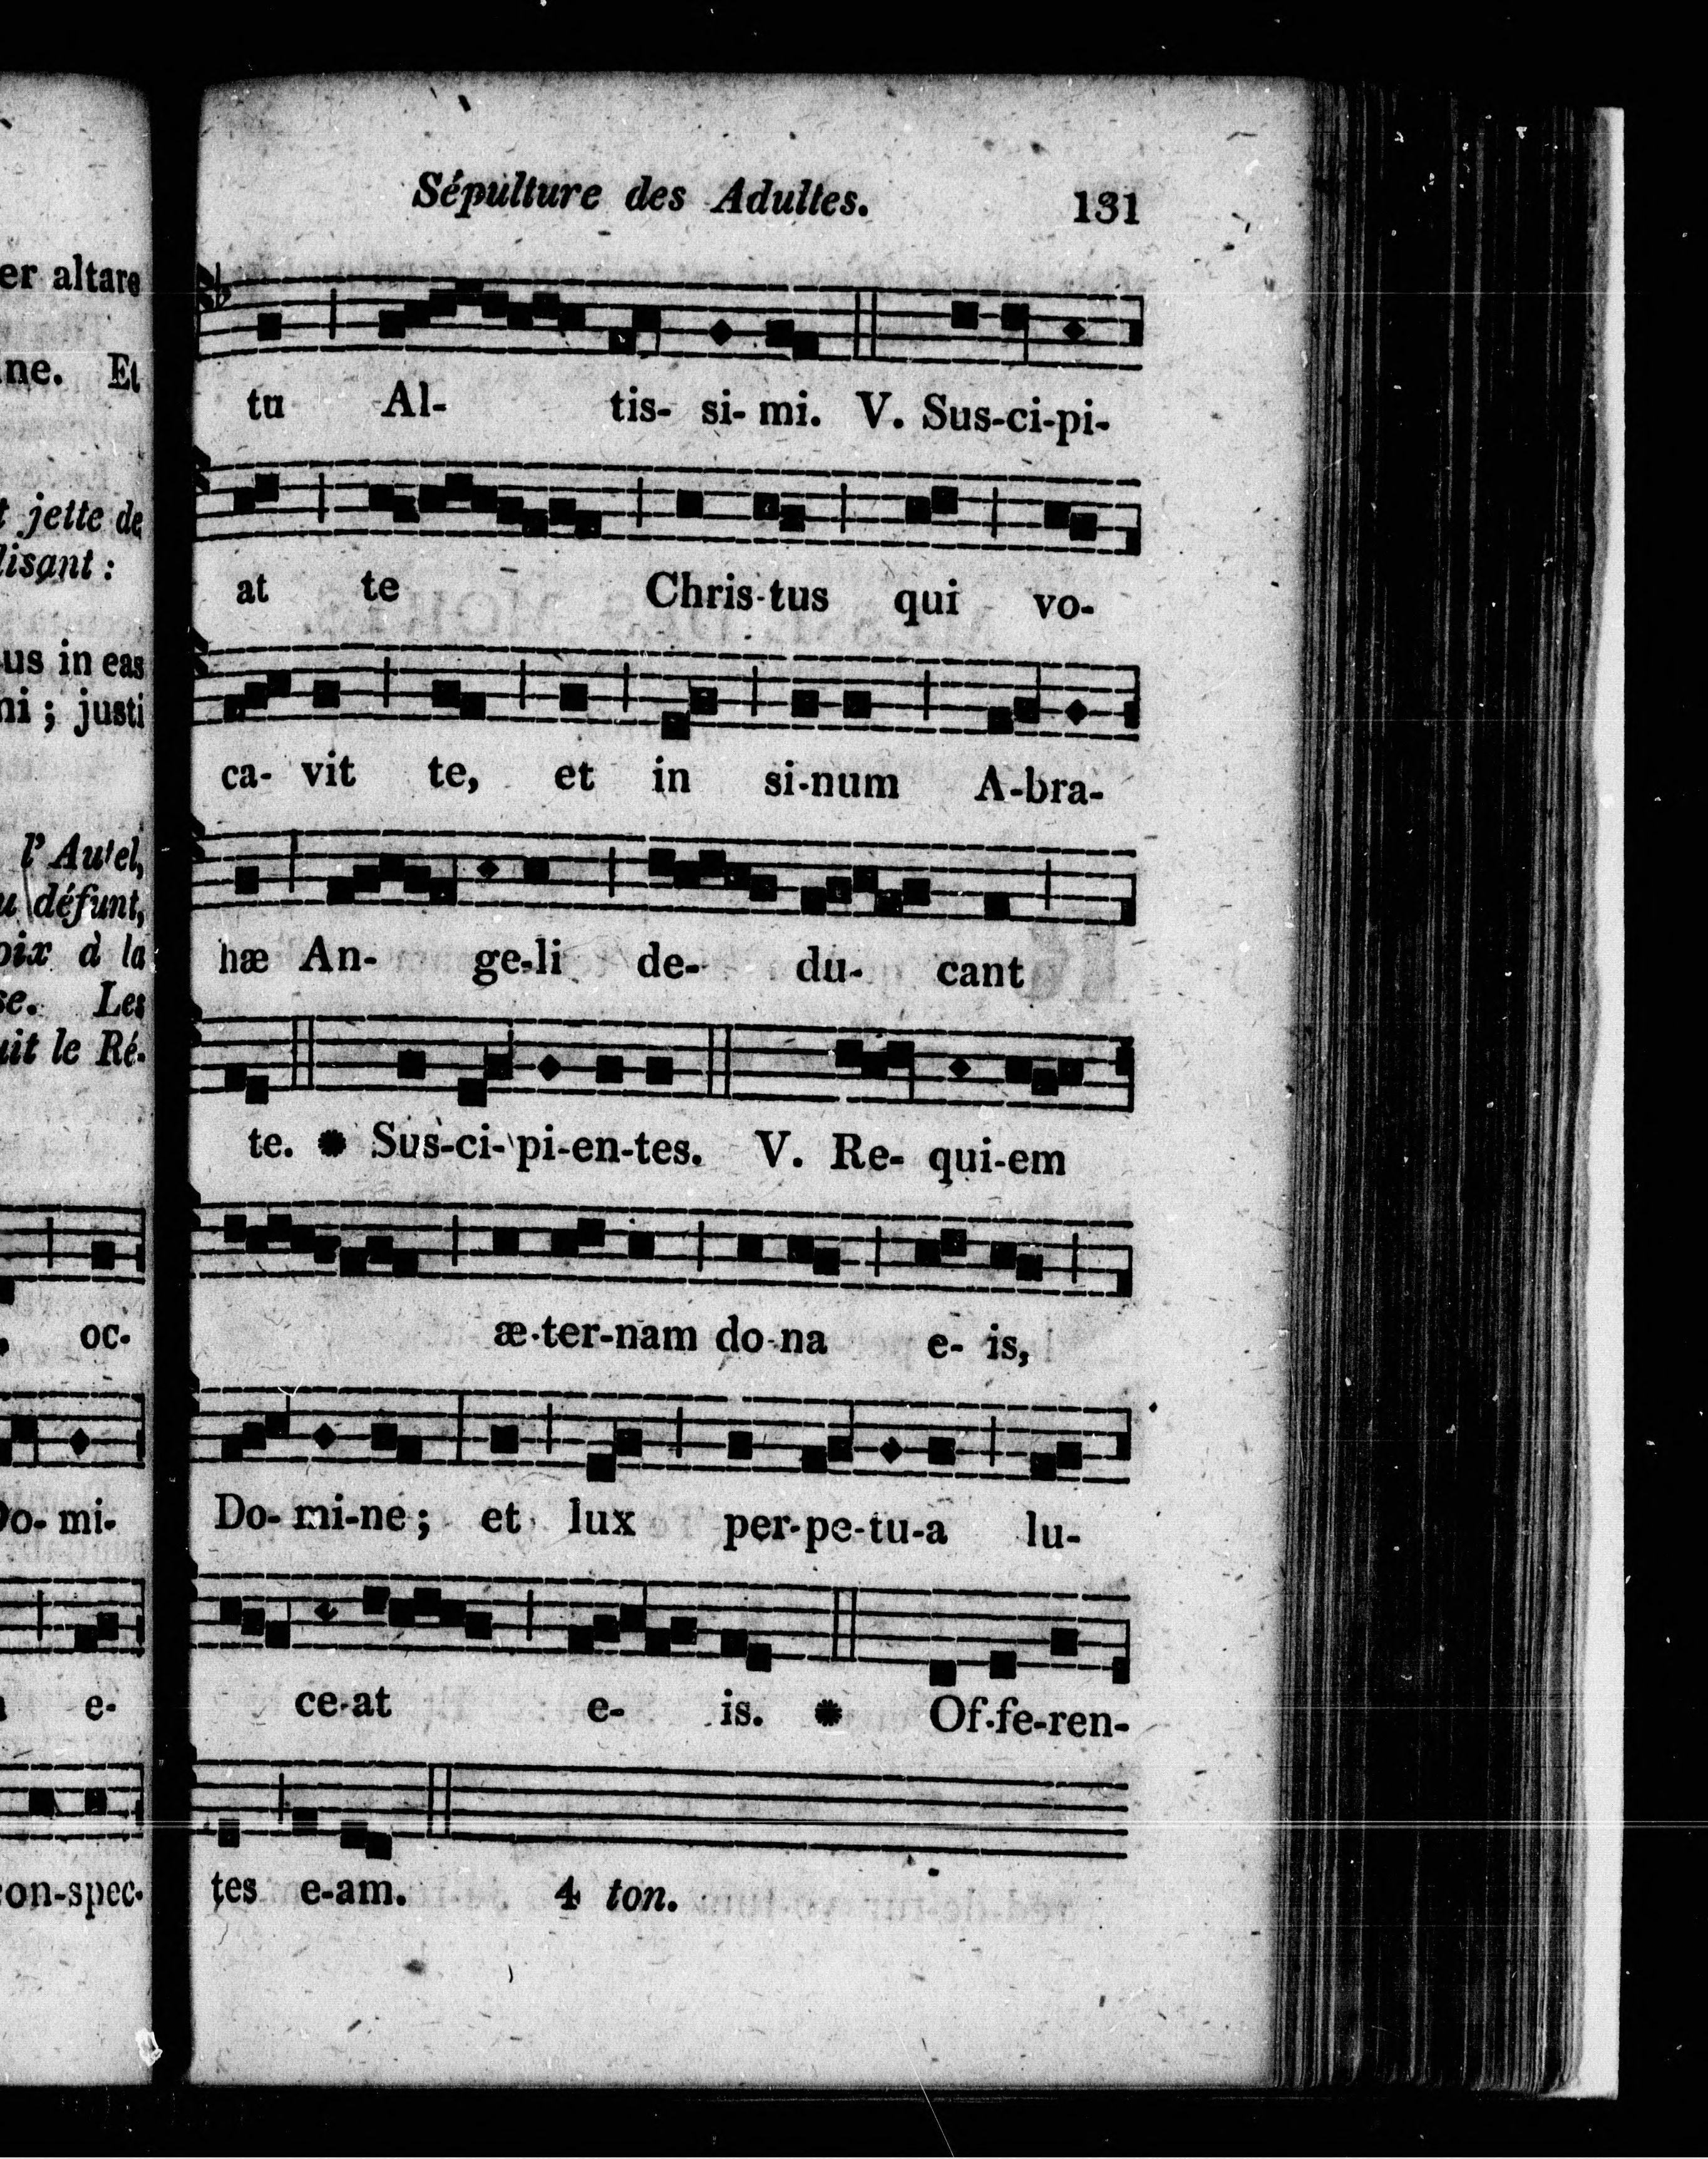 er altare
ine. Et
t jette de
disant :
us in eas
ni ; justi
l' Autel,
u défunt,
oix à la
se. Les
uit le Ré-
oc-
Do- mi-
e-
con-spec-
Sépulture des Adultes. 131
tu Al- tis- si- mi. V. Sus-ci-pi-
at te Chris-tus qui vo-
ca- vit te, et in si-num A-bra-
hæ An- ge-li de- du- cant
te. * Sus-ci-pi-en-tes. V. Re- qui-em
æ-ter-nam do-na e- is,
Do- mi-ne ; et lux per-pe-tu-a lu-
ce-at e- is. * Of-fe-ren-
tes e-am. 4 ton.